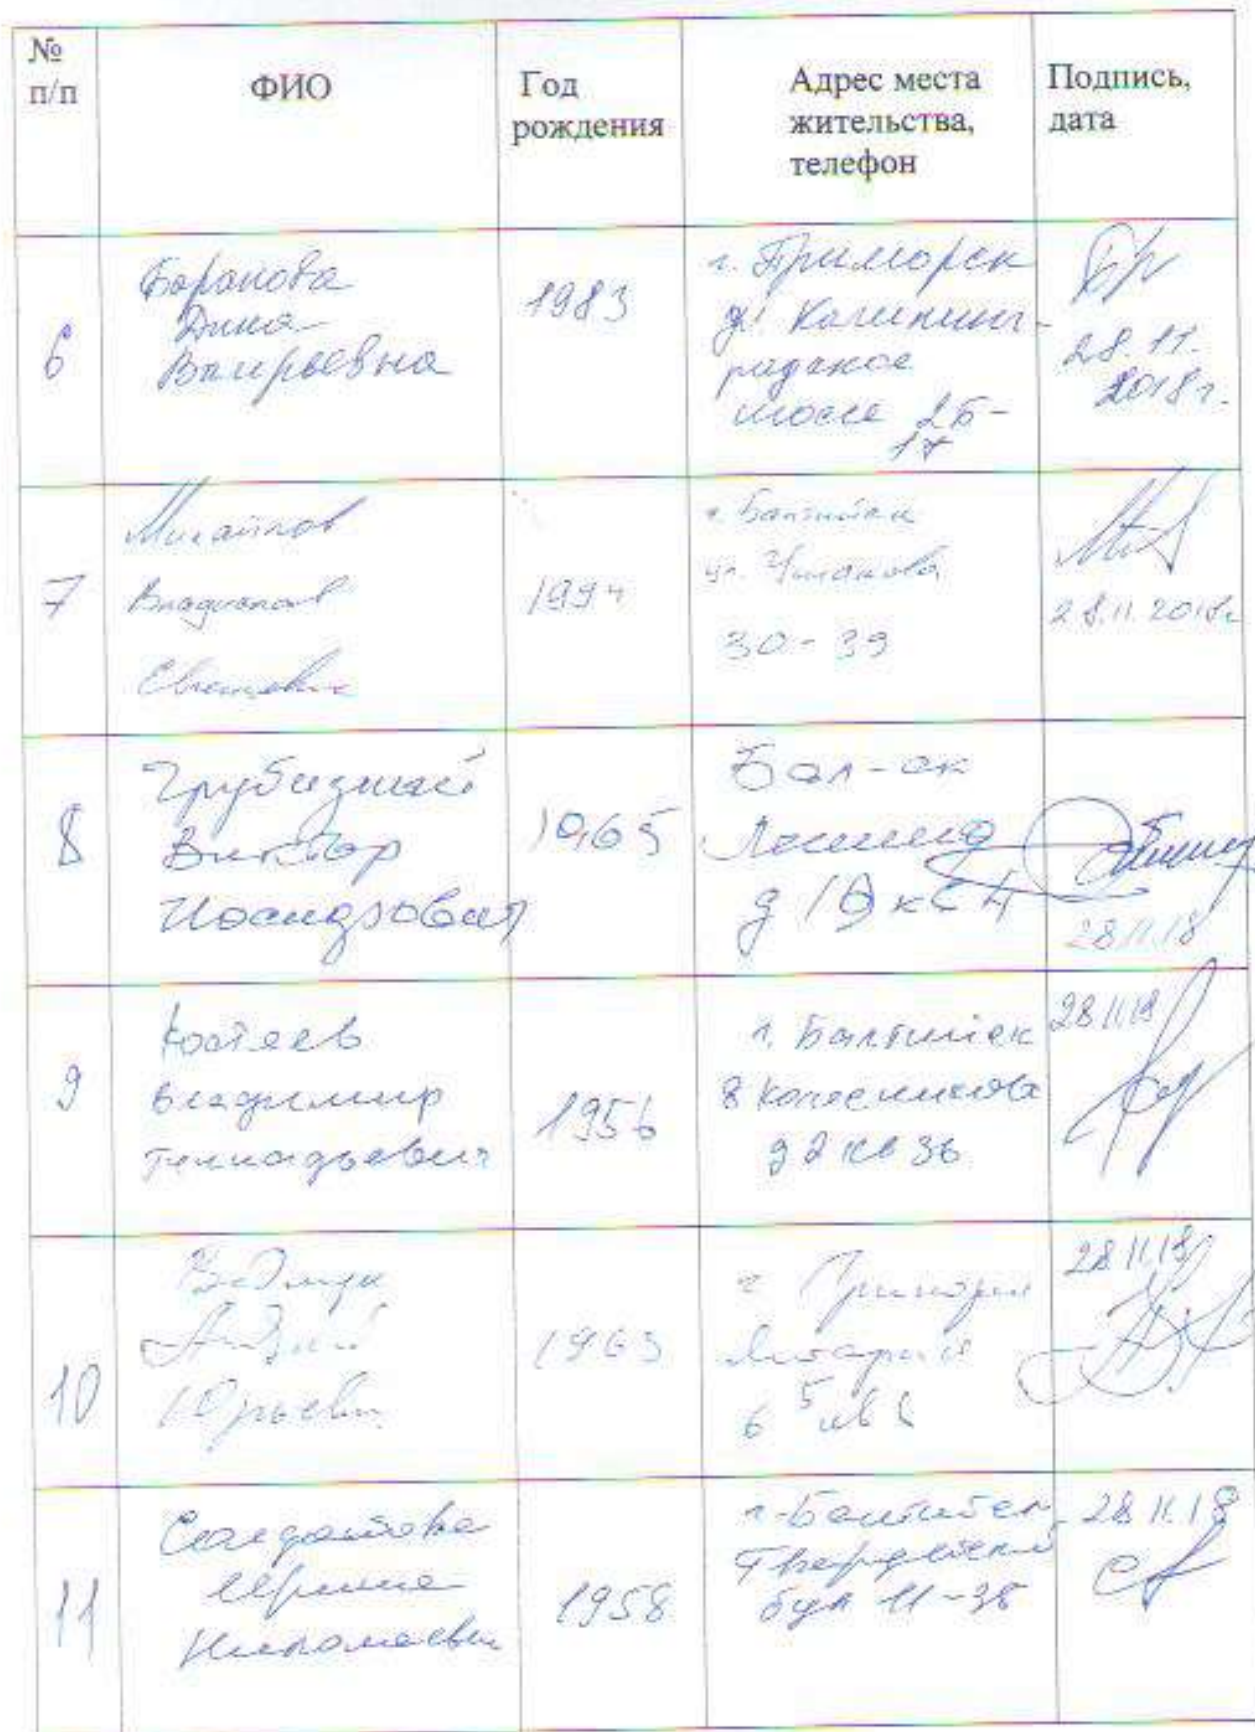 № п/п
ФИО
Год рождения
Адрес места жительства, телефон
Подпись, дата
6
Баранова
Дина
Валерьевна
1983
г. Приморск
ул. Калининг-
радское
шоссе 2Б-
17
28.11.
2018г.
7
Михайлов
Владислав
Евгеньевич
1994
г. Балтийск
ул. Ушакова
30-39
28.11.2018г
8
Виктор
1965
Бал-ск
Ленина
28.11.18
9
Костеев
Владимир
Геннадьевич
1956
г. Балтийск
Колесникова
д 2 кв 36
28.11.18
10
Юрьевич
1963
28.11.18
11
Солдатова
Ирина
Николаевна
1958
г. Балтийск
Гвардейский
бул 11-38
28.11.18